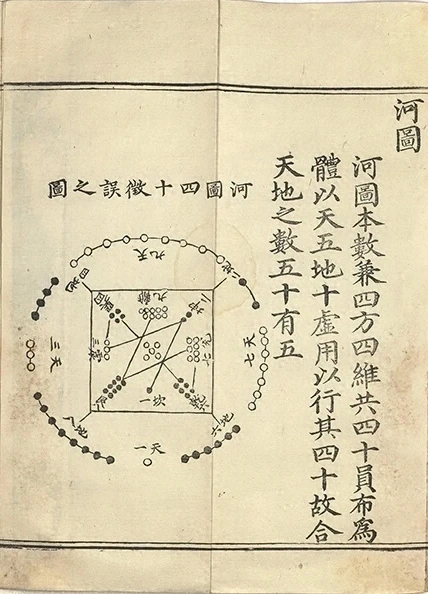 河圖
河圖本數兼四方四維共四十員布爲
體以天五地十虛用以行其四十故合
天地之數五十有五
河圖四十徵誤之圖
天九
地二
地四
天七
天三
地六
地八
天一
離九
兌七
坎一